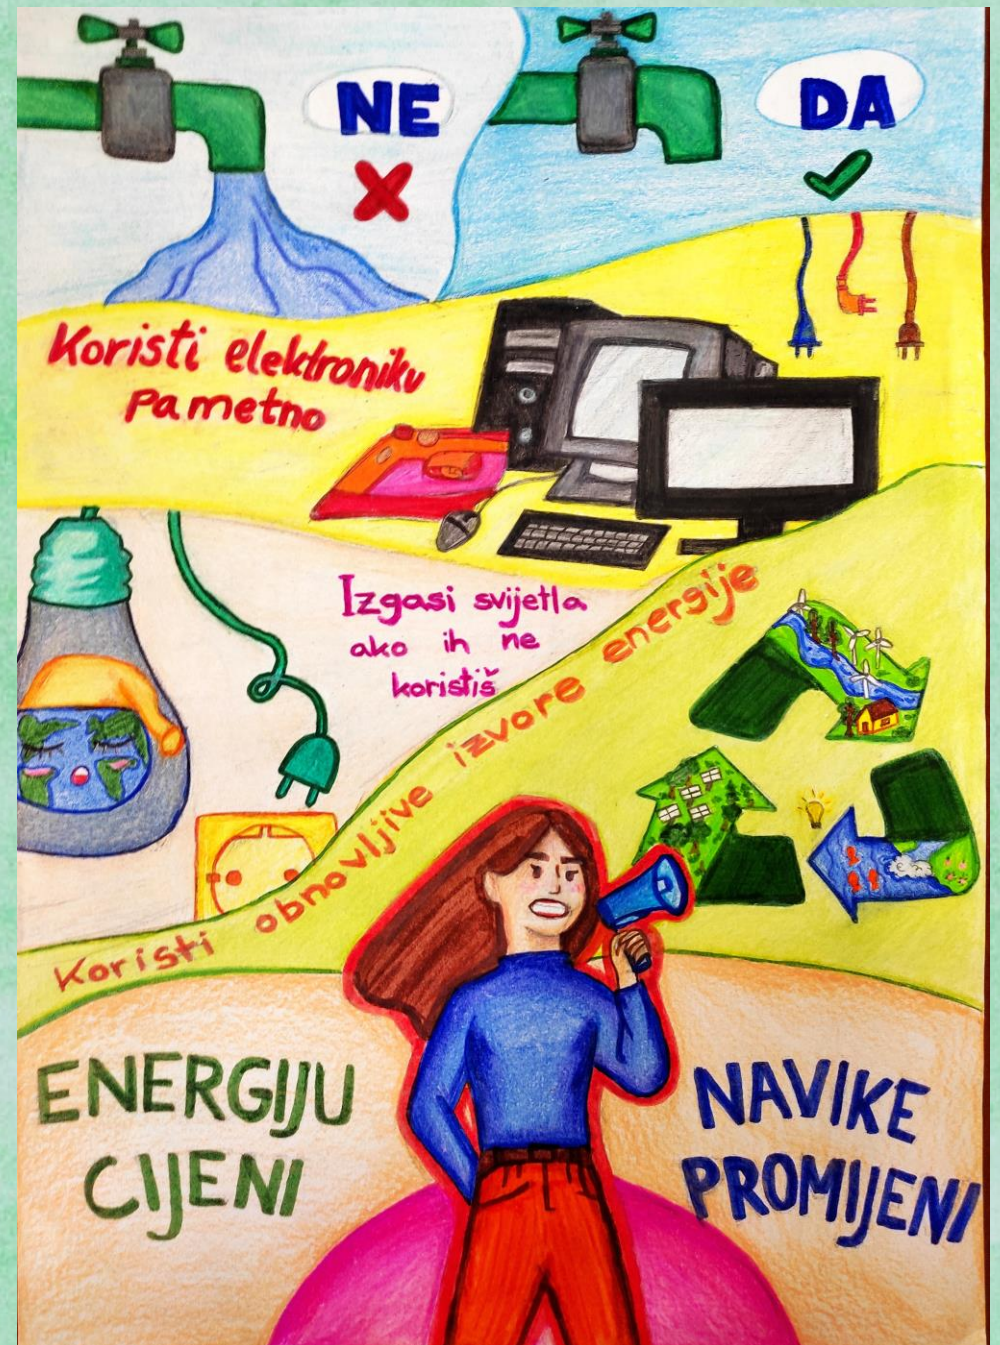 NE
DA
Koristi elektroniku
pametno
Izgasi svijetla
ako ih ne
koristiš
Koristi obnovljive izvore energije
ENERGIJU
CIJENI
NAVIKE
PROMIJENI